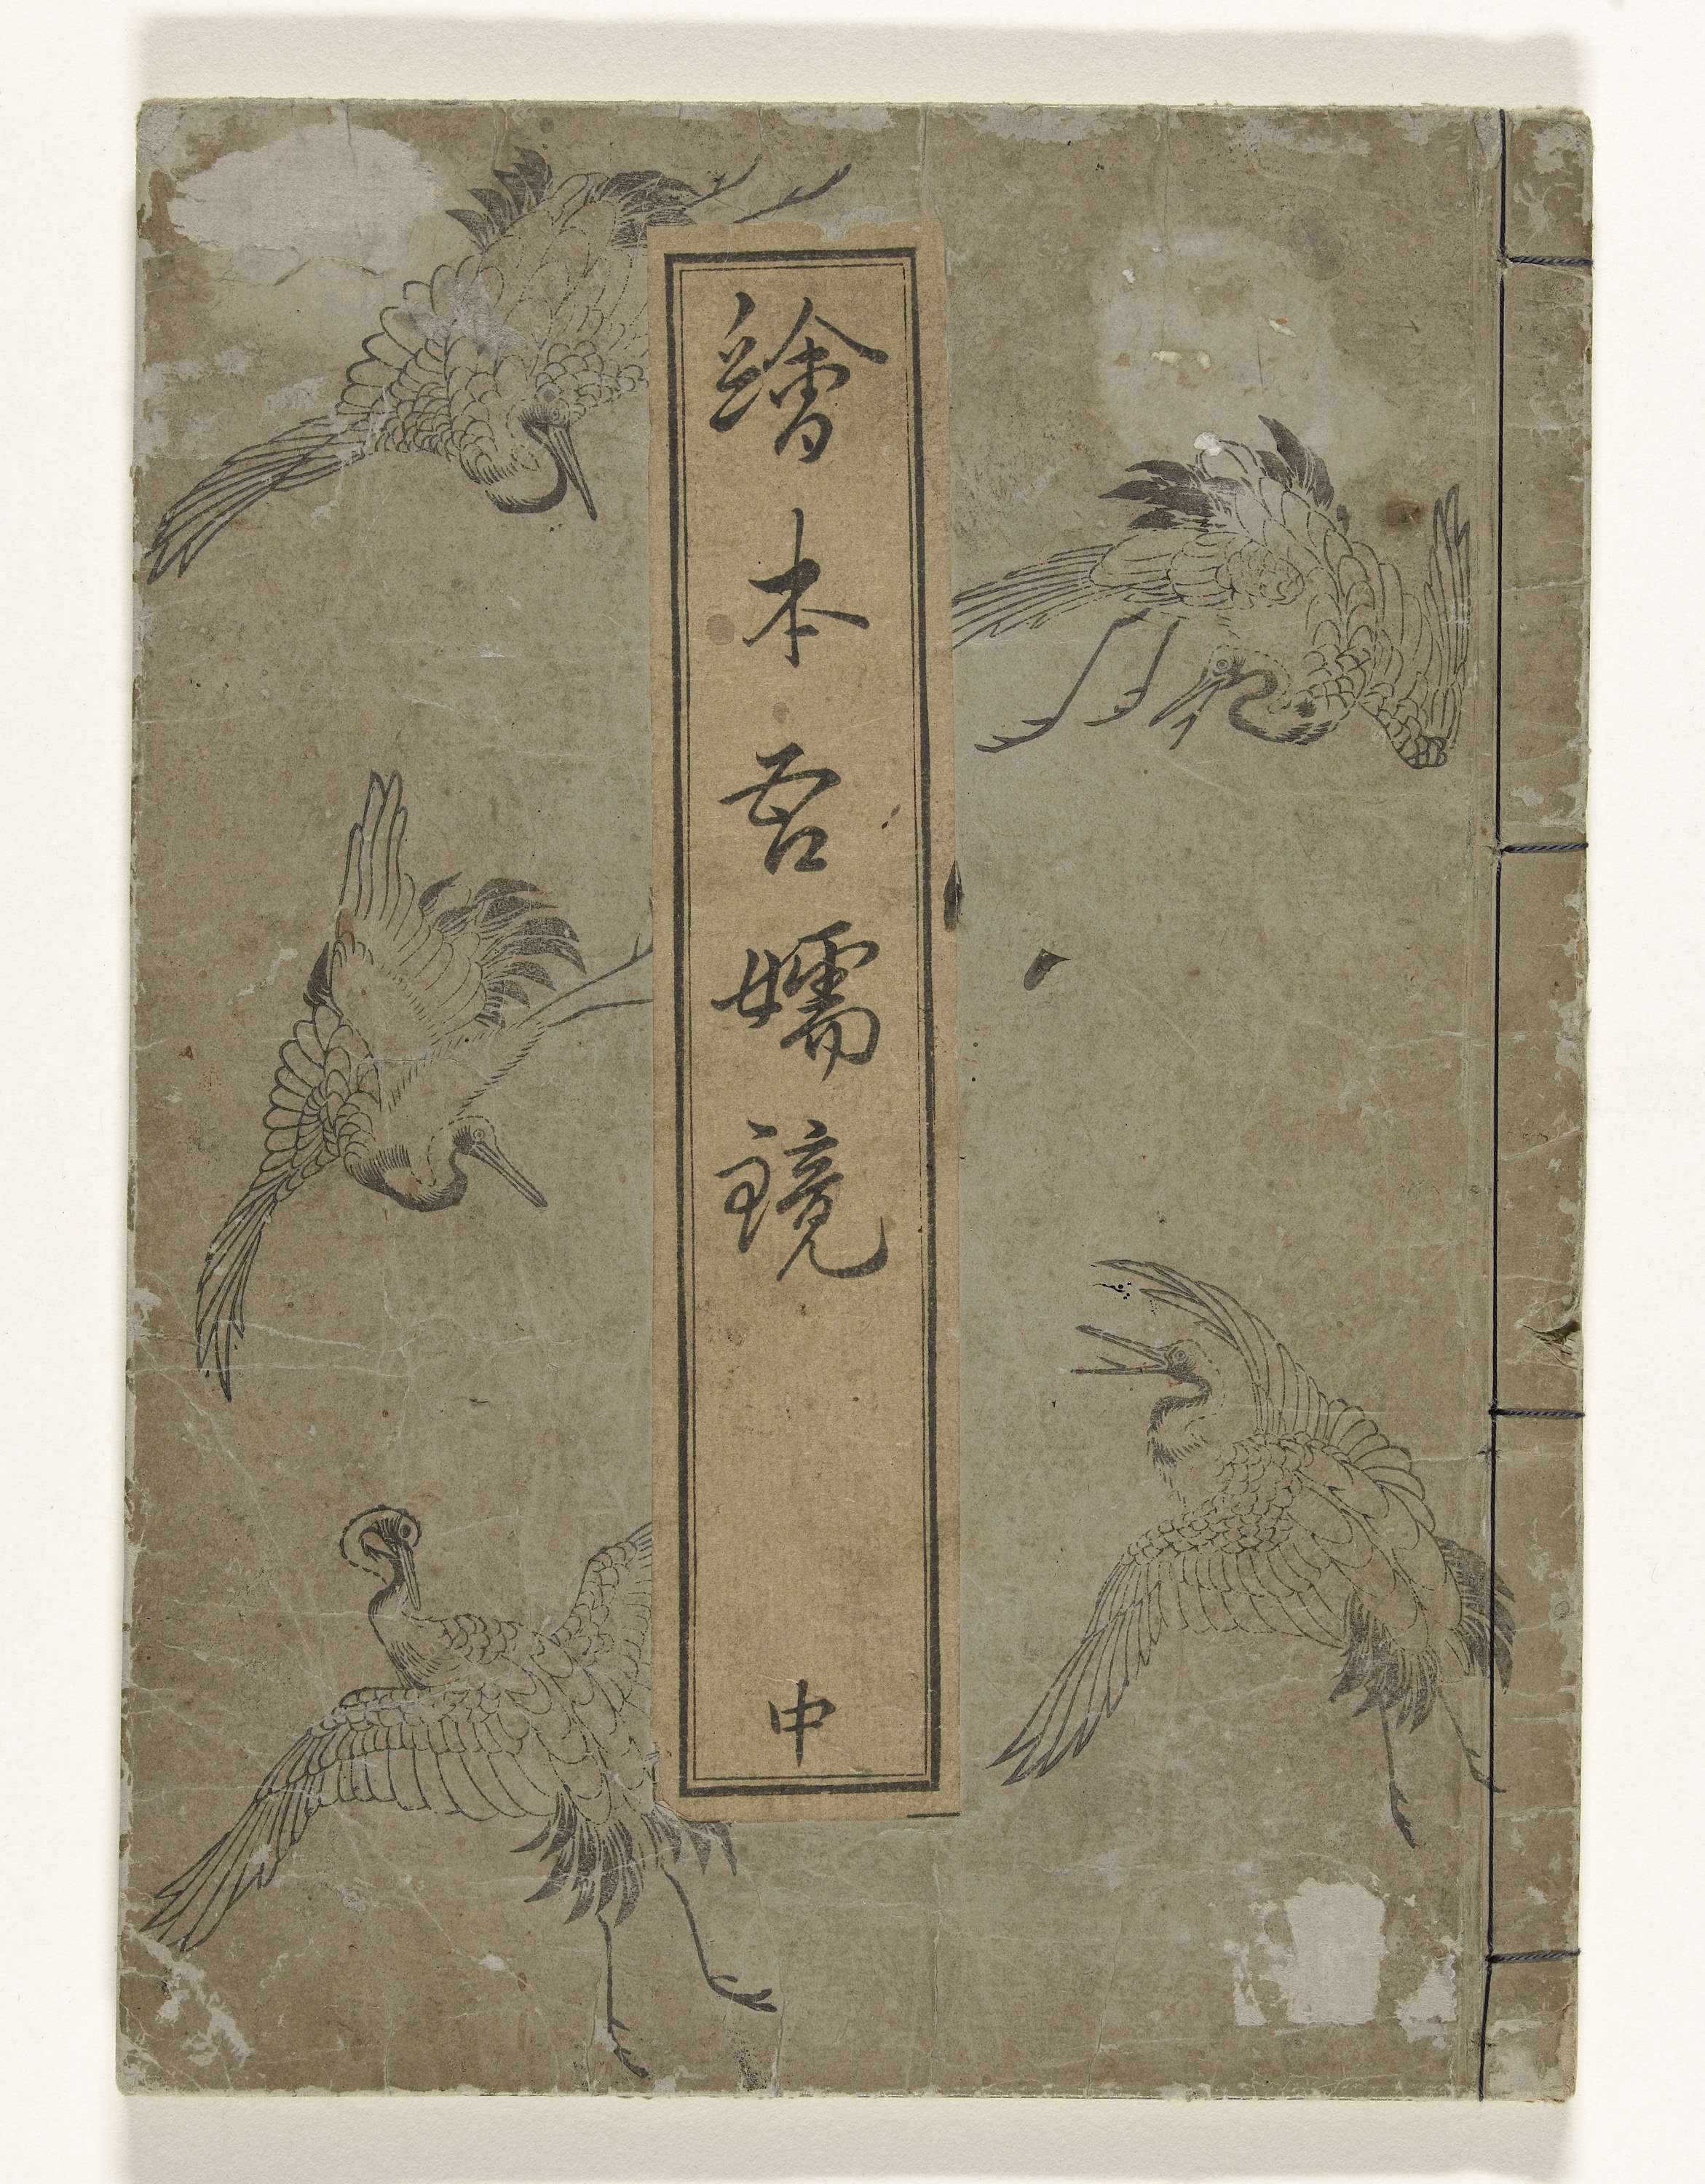 繪本吾嬬鏡
中